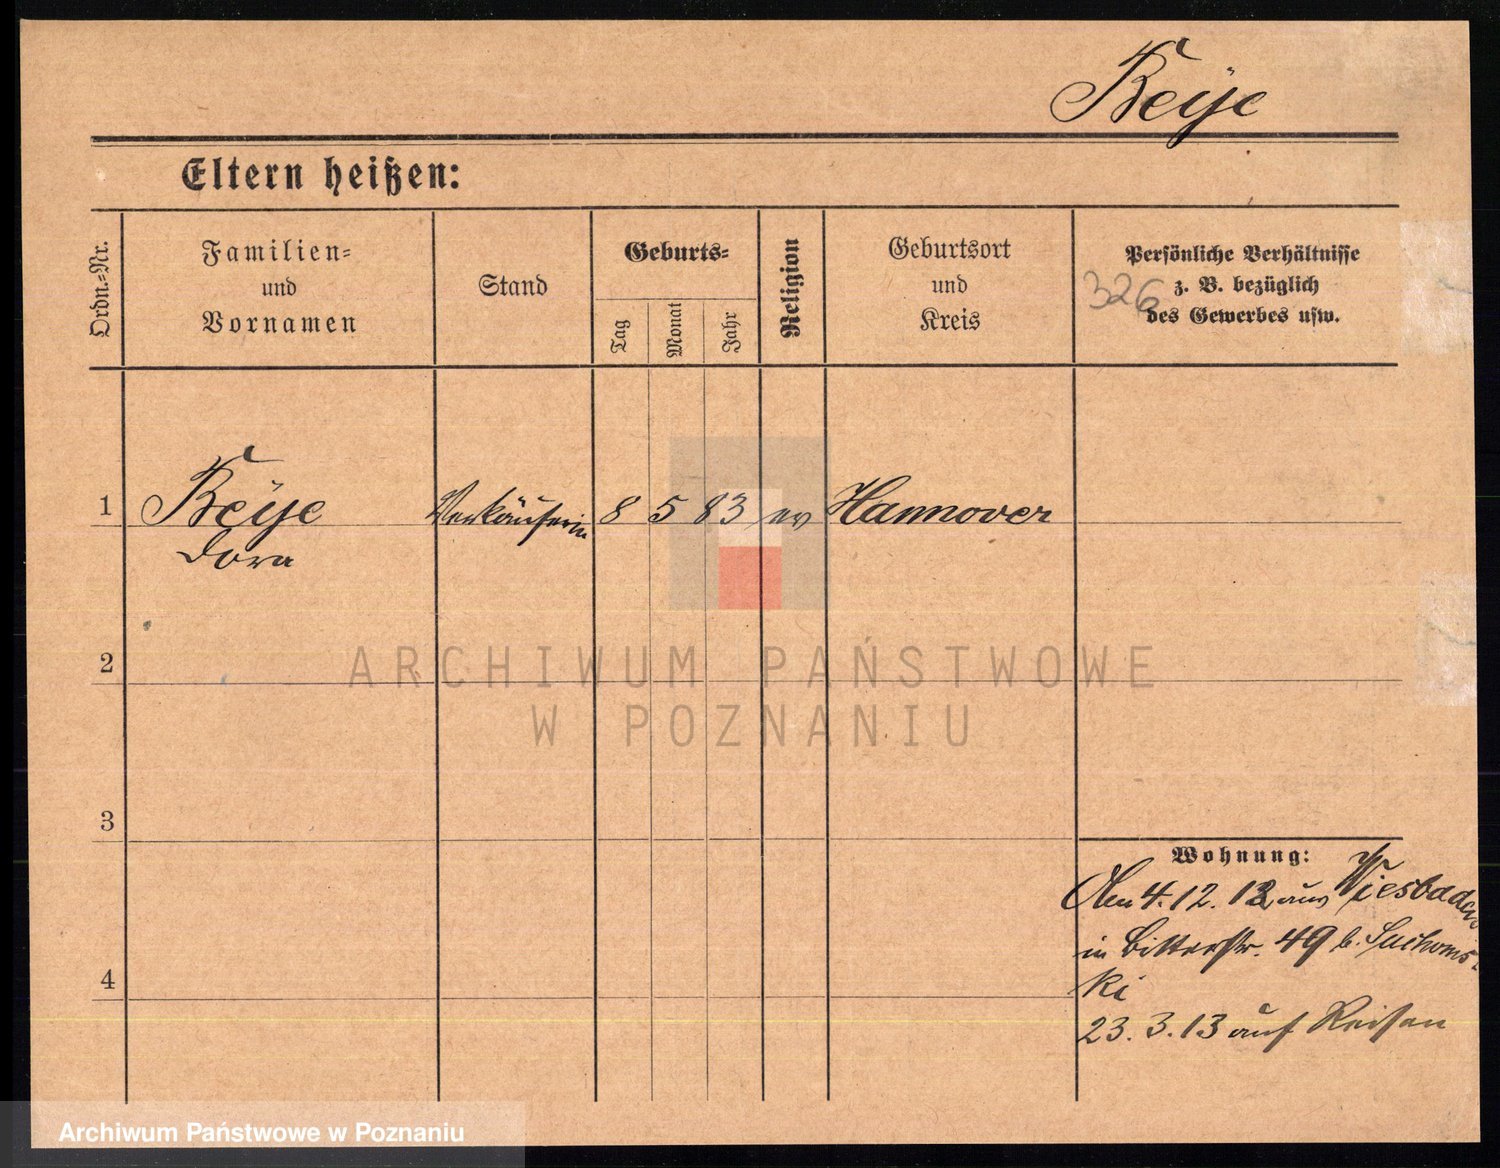 Beÿe
Eltern heißen:
Ordn.-Nr.
Familien-
und
Vornamen
Stand
Geburts-
Tag
Monat
Jahr
Religion
Geburtsort
und
Kreis
Persönliche Verhältnisse
z. B. bezüglich
des Gewerbes usw.
326
1 Beÿe Verkäuferin 8 5 83 ev Hannover
Dora
2
ARCHIWUM PAŃSTWOWE
W POZNANIU
3
Wohnung:
4.12.12 aus Wiesbaden
in Bitterstr. 49 b. Suchoms-
4
ki
23.3.13 auf Reisen
Archiwum Państwowe w Poznaniu